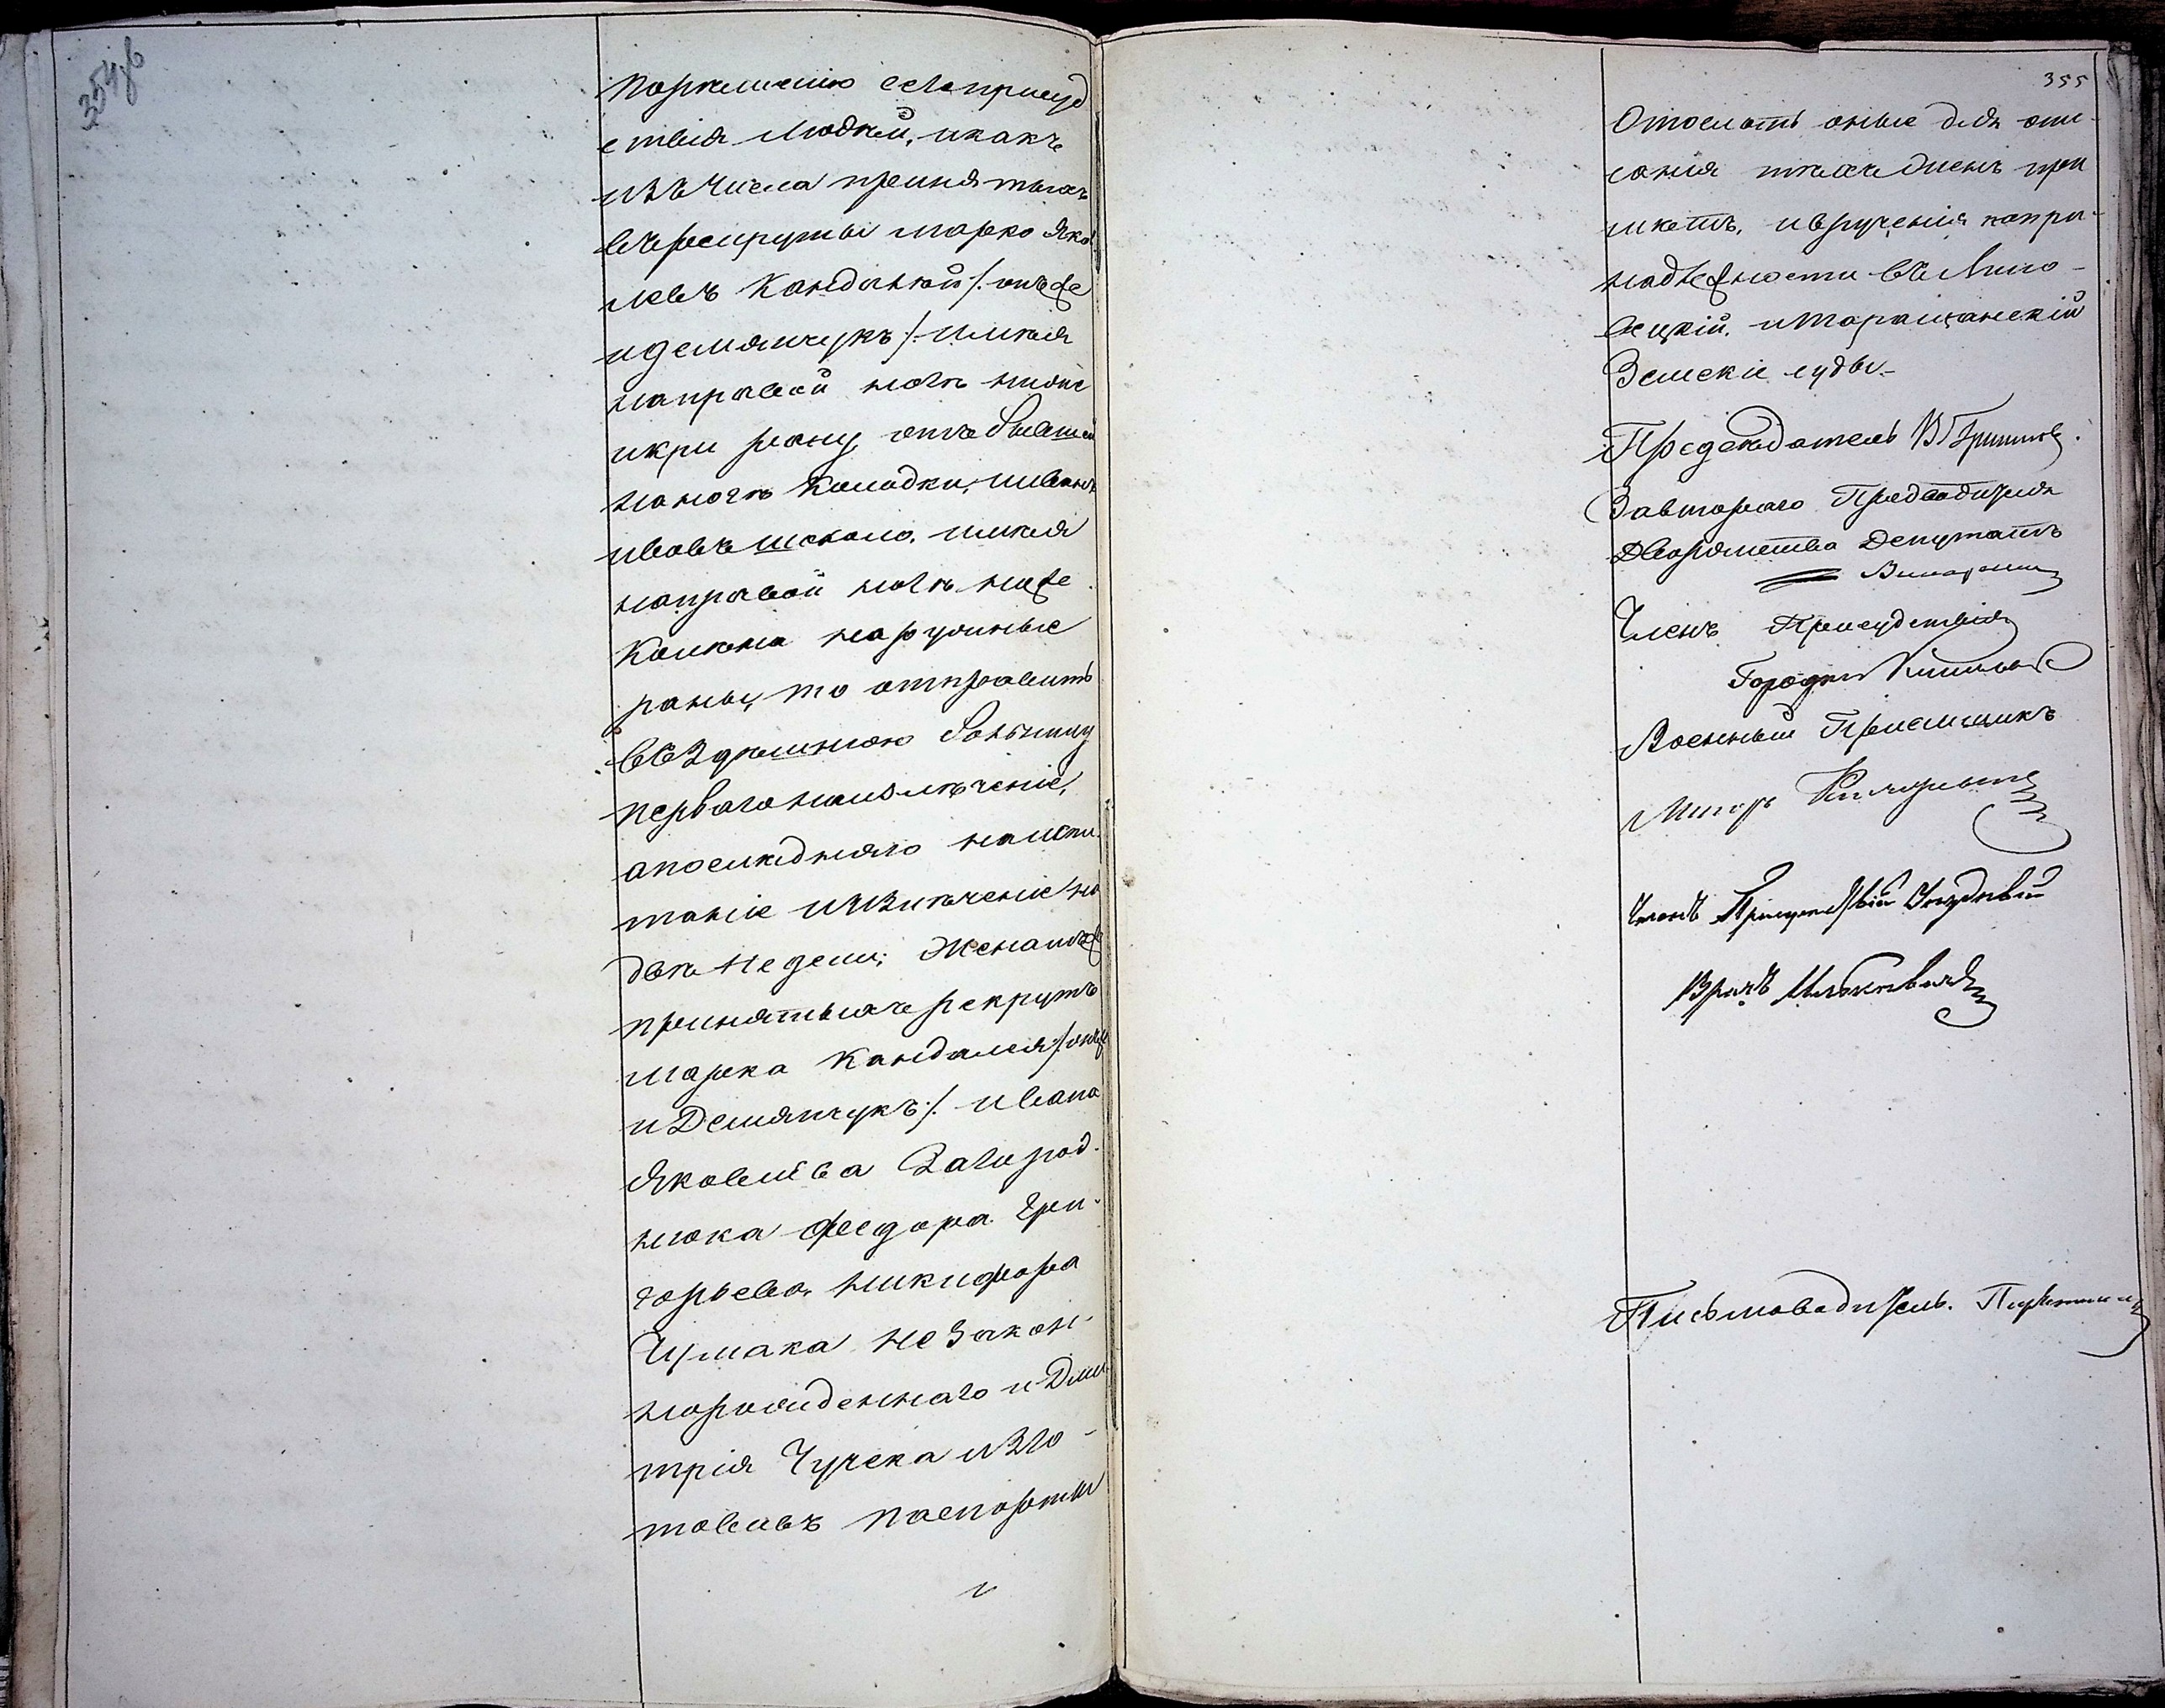 354 об
порешенію сего присуд
ствія людей, икакъ
изъ числа принятыхъ
въ рекруты Марко Яков
левъ Канданій /: онъ же
и Демянчукъ :/ имѣя
направой ногѣ ниже
икри рану отъ бывшей
наногѣ колодки, иИванъ
имѣя
направой ногѣ ниже
колѣна наружные
раны, то отправить
въ Здешнюю больницу
перваго наизлѣченіе,
апоследняго наиспи
таніе иизлѣченіе на
двѣ недели; Женамъ же
принятыхъ рекрутъ
Марка Канданія /: онъ же
и Демянчукъ :/ Ивана
Яковлева Загород-
нюка Федора Гри-
горьева, Никифора
Чумака незакон-
норожденнаго и Дми
трія Чучека изго-
товивъ паспорты
и
355
Отослать оные для отис
канія техъ женъ при
метъ, ивручения попри-
надлежности въ Липо-
вецкій, иТаращанскій
Земскіе суды.-
Председатель
Завтораго Предводителя
Дворянства Депутатъ
Членъ Присудствія
Военный Приемщикъ
Членъ Присудствія Уездный
Врачъ
Письмоводитель.